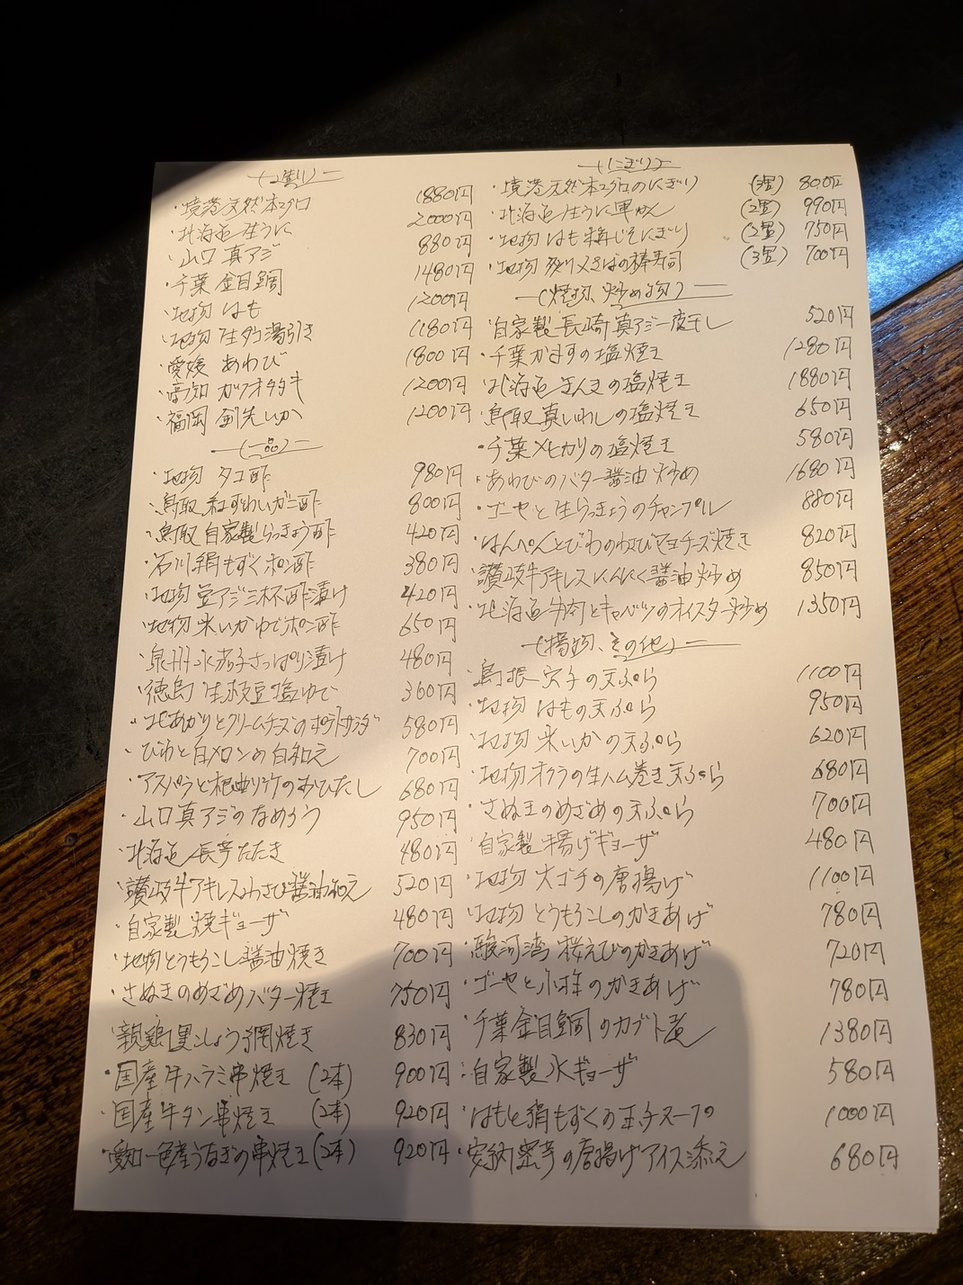 (造り)
・境港天然本マグロ 1880円
・北海道生うに 2000円
・山口真アジ 880円
・千葉金目鯛 1480円
・地物はも 1200円
・地物生タコ湯引き 1180円
・愛媛あわび 1800円
・高知カツオタタキ 1200円
・福岡剣先いか 1200円
(一品)
・地物タコ酢 980円
・鳥取紅ずわいガニ酢 800円
・鳥取自家製らっきょう酢 420円
・石川絹もずくポン酢 380円
・地物豆アジ三杯酢漬け 420円
・地物米いかゆでポン酢 650円
・泉州水茄子さっぱり漬け 480円
・徳島生枝豆塩ゆで 360円
・北あかりとクリームチーズのポテトサラダ 580円
・びわと白メロンの白和え 700円
・アスパラと根曲り竹のおひたし 680円
・山口真アジのなめろう 950円
・北海道長芋たたき 480円
・讃岐牛アキレスわさび醤油和え 520円
・自家製焼ギョーザ 480円
・地物とうもろこし醤油焼き 700円
・さぬきのめざめバター焼き 750円
・親鶏黒こしょう網焼き 830円
・国産牛ハラミ串焼き (2本) 900円
・国産牛タン串焼き (2本) 920円
・愛知一色産うなぎの串焼き (2本) 920円
(にぎり)
・境港天然本マグロのにぎり 800円
・北海道生うに軍かん (2貫) 990円
・地物はも梅じそにぎり (2貫) 750円
・地物炙り〆さばの棒寿司 (3貫) 700円
(焼物、炒め物)
・自家製長崎真アジ一夜干し 520円
・千葉かますの塩焼き 1280円
・北海道きんきの塩焼き 1880円
・鳥取真いわしの塩焼き 650円
・千葉メヒカリの塩焼き 580円
・あわびのバター醤油炒め 1680円
・ゴーヤと生らっきょうのチャンプル 880円
・はんぺんとびわのわさびマヨチーズ焼き 820円
・讃岐牛アキレスにんにく醤油炒め 850円
・北海道牛肉とキャベツのオイスター炒め 1350円
(揚物、その他)
・島根穴子の天ぷら 1100円
・地物はもの天ぷら 950円
・地物米いかの天ぷら 620円
・地物オクラの生ハム巻き天ぷら 680円
・さぬきのめざめの天ぷら 700円
・自家製揚げギョーザ 480円
・地物大ゴチの唐揚げ 1100円
・地物とうもろこしのかきあげ 780円
・駿河湾桜えびのかきあげ 720円
・ゴーヤと小柱のかきあげ 780円
・千葉金目鯛のカブト煮 1380円
・自家製水ギョーザ 580円
・はもと絹もずくの玉子スープ 1000円
・安納蜜芋の唐揚げアイス添え 680円